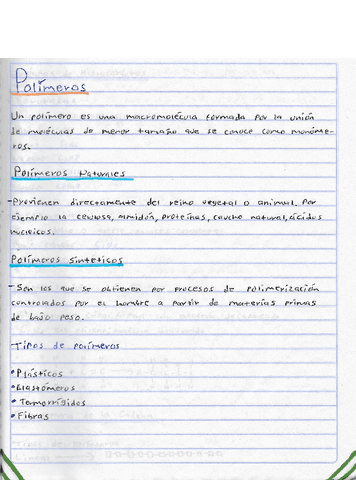 Polímeros
Un polímero es una macromolécula formada por la unión
de moléculas de menor tamaño que se conoce como monóme-
ros.
Polímeros Naturales
-Provienen directamente del reino vegetal o animal. Por
ejemplo la celulosa, almidón, proteínas, caucho natural, ácidos
nucleicos.
Polímeros sintéticos
-Son los que se obtienen por procesos de polimerización
controlados por el hombre a partir de materias primas
de bajo peso.
Tipos de polímeros
•Plásticos
•Elastómeros
•Termorrígidos
•Fibras